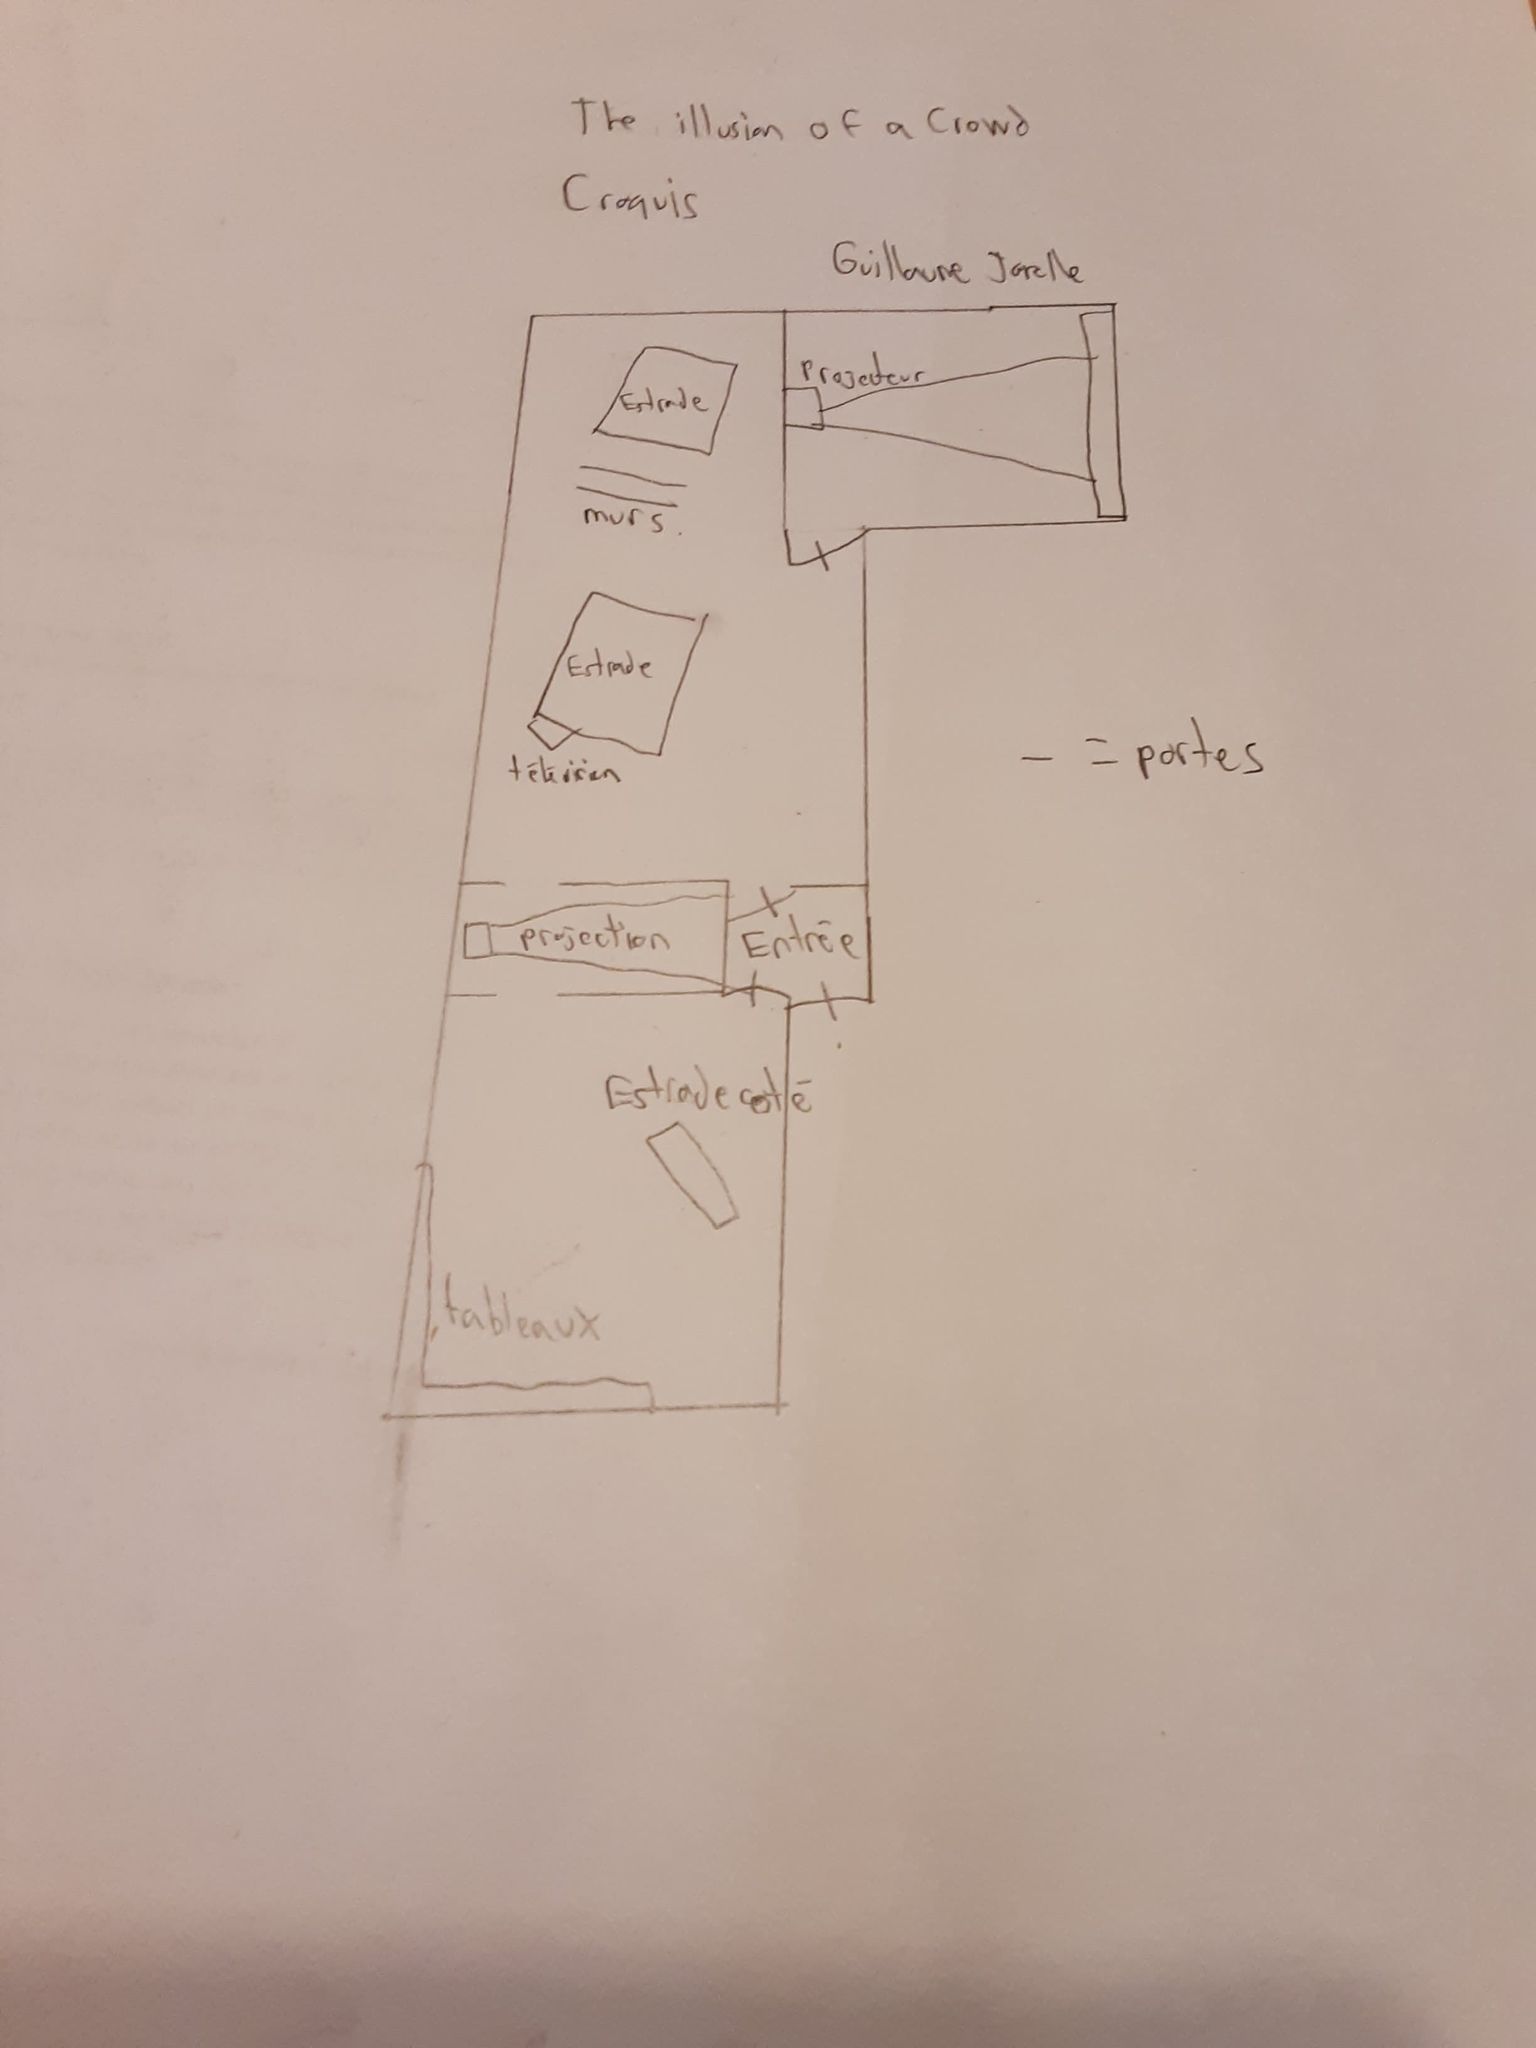 The illusion of a Crowd
Croquis
Guillaume
Projecteur
Estrade
murs.
Estrade
télévision
— = portes
projection
Entrée
Estrade coté
tableaux